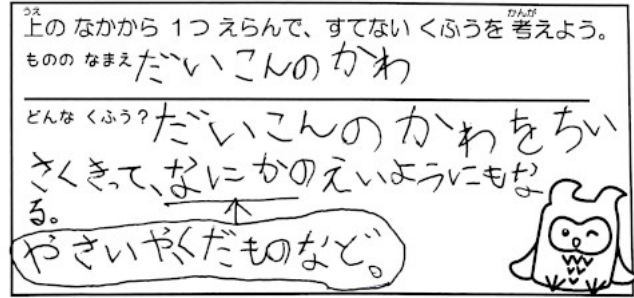 上の なかから 1つ えらんで、すてない くふうを 考えよう。
ものの なまえ だいこんのかわ
どんな くふう? だいこんのかわをちい
さくきって、なにかのえいようにもな
る。
やさいやくだものなど。